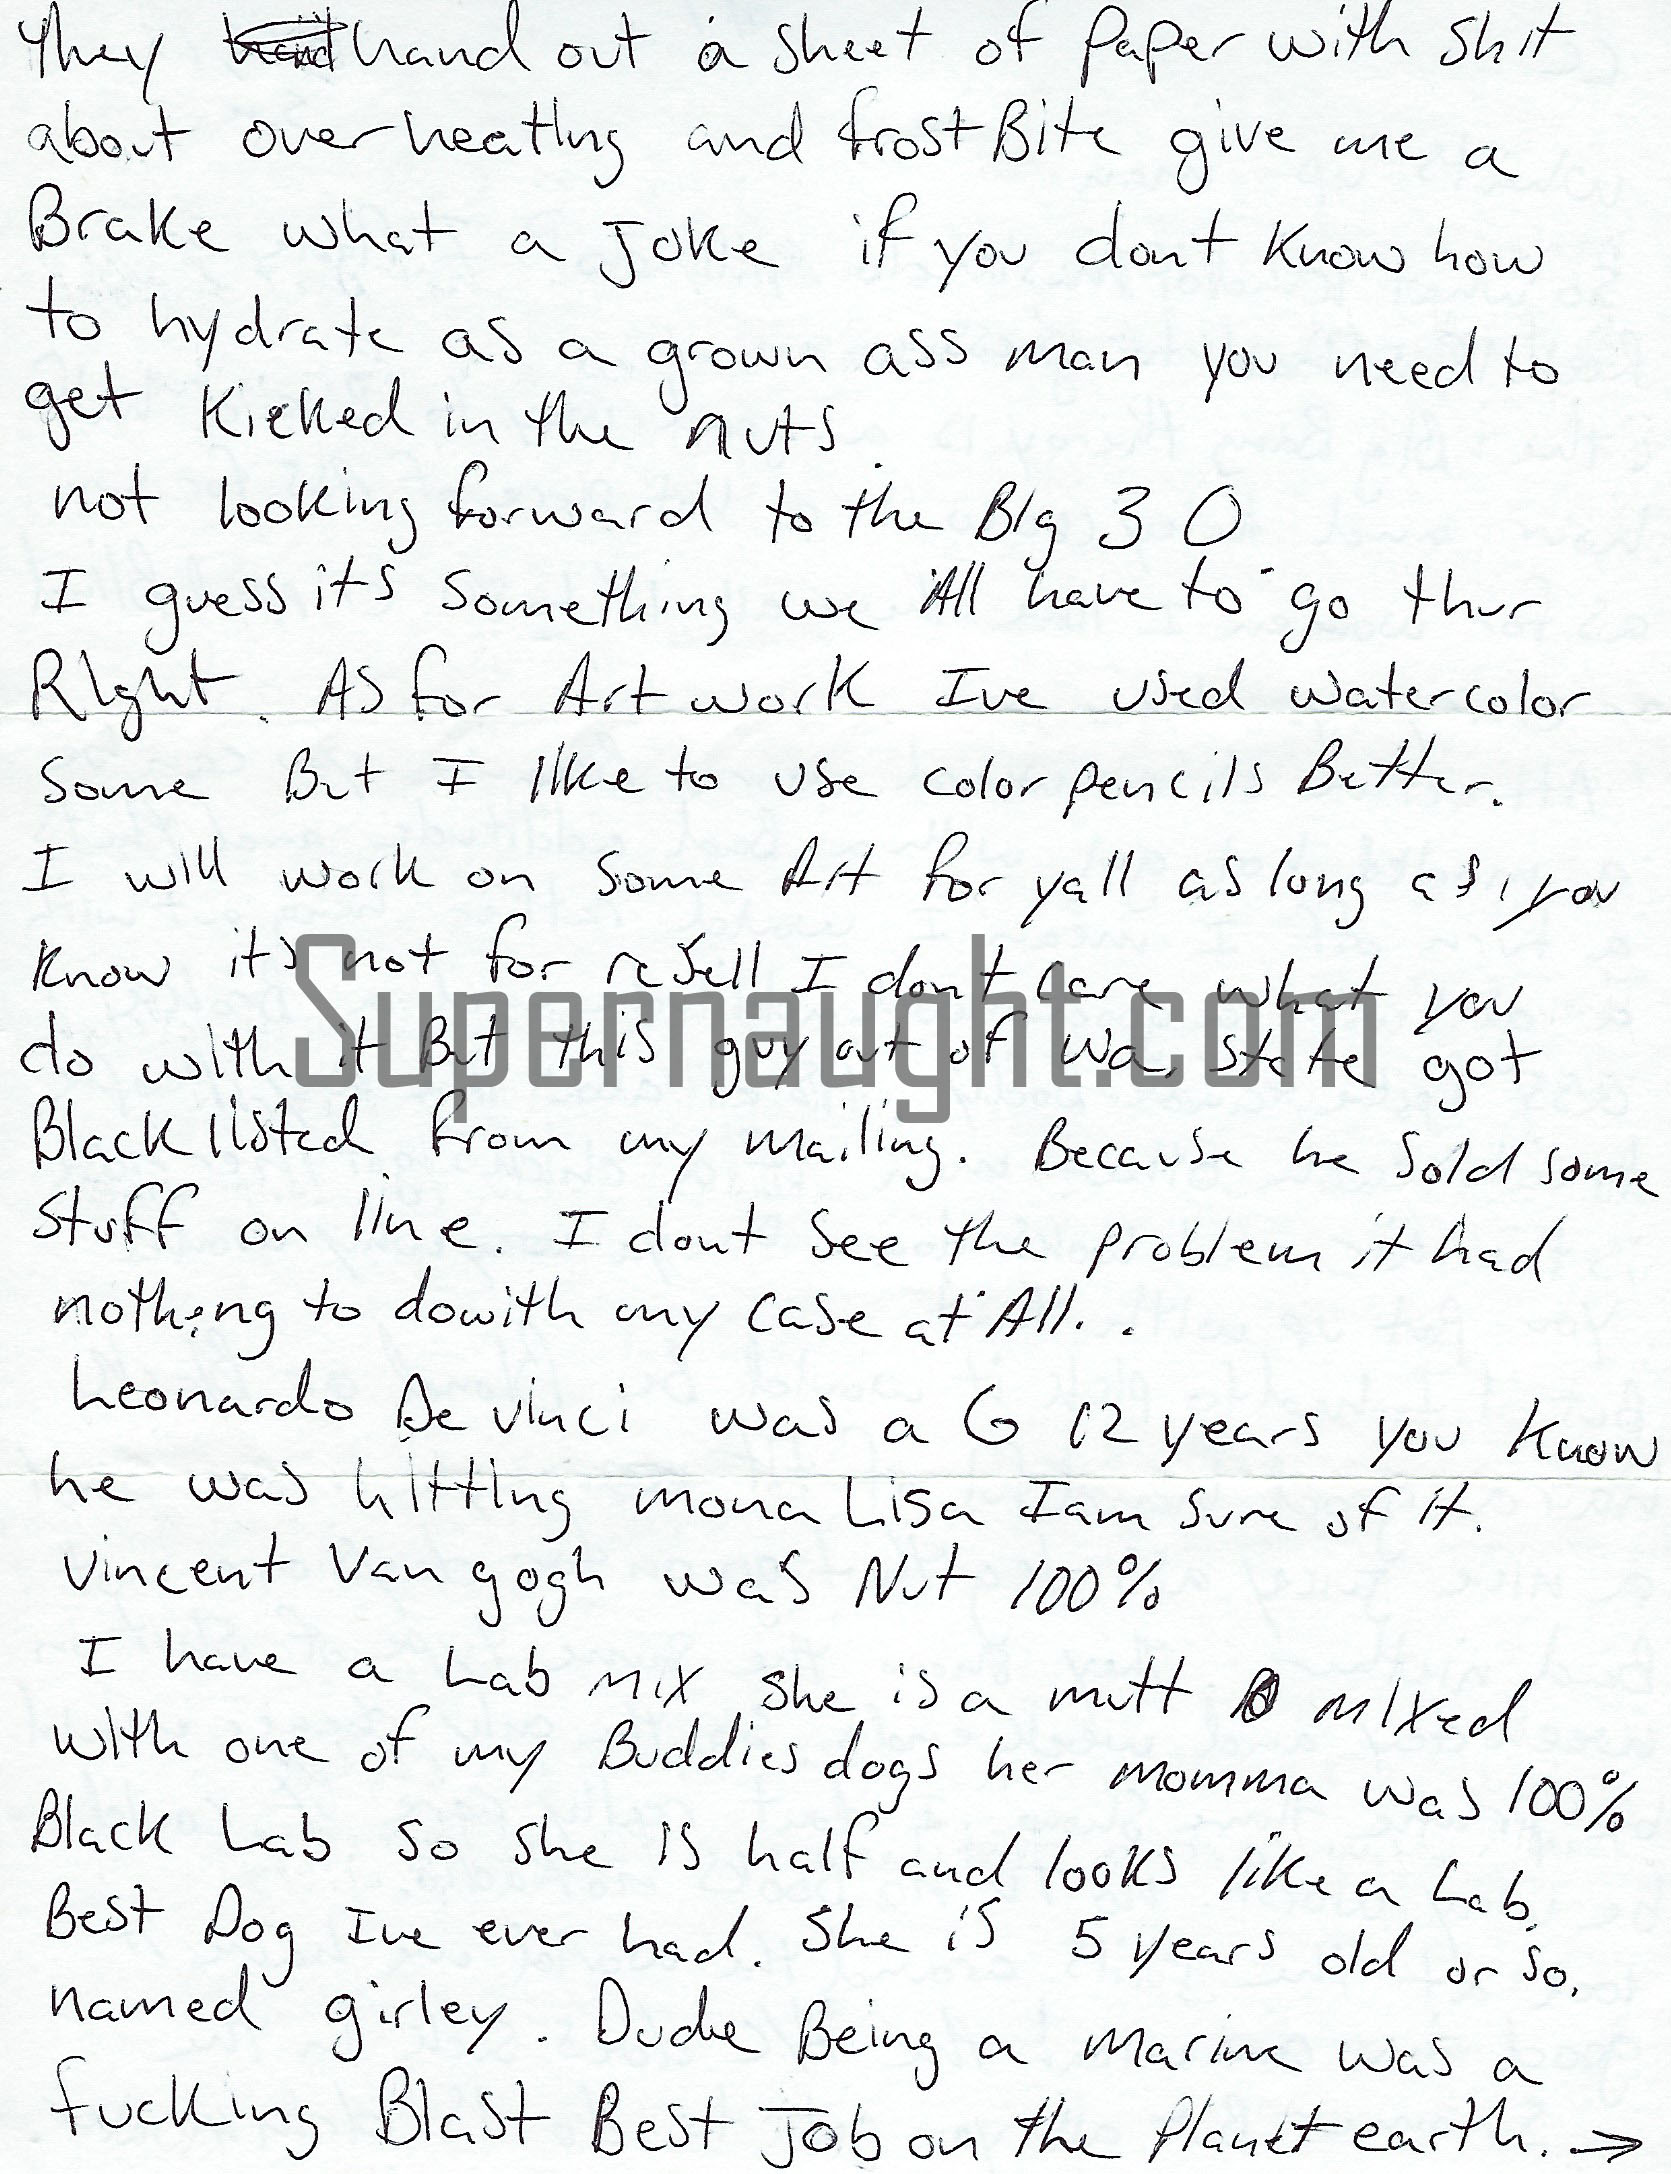 They hand hand out a sheet of paper with shit
about overheating and frost Bite give me a
Brake what a joke if you dont know how
to hydrate as a grown ass man you need to
get Kicked in the nuts.
not looking forward to the Big 3 0
I guess its something we All have to go thur
Right. As for Art work Ive used watercolor
some But I like to use color pencils Better.
I will work on some Art for yall as long as you
know its not for resell I dont care what you
do with it But this guy out of wa, state got
Black listed from my mailing. Because he sold some
stuff on line. I dont see the problem it had
nothing to dowith my case at All. .
Leonardo De vinci was a G 12 years you know
he was hitting mona Lisa I am sure of it.
Vincent Van gogh was Nut 100%
I have a Lab mix she is a mutt mixed
with one of my Buddies dogs her momma was 100%
Black Lab so she is half and looks like a Lab.
Best Dog Ive ever had. She is 5 years old or so.
named girley. Dude Being a marine was a
fucking Blast Best Job on the Planet earth. →
Supernaught.com